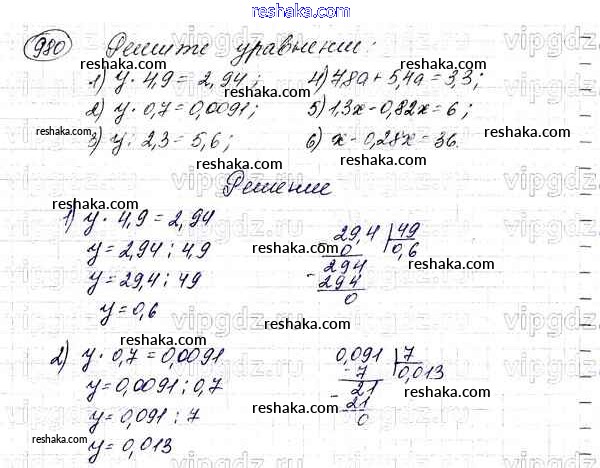 reshaka.com
reshaka.com
980 Решите уравнения:
1) y · 4,9 = 2,94; 4) 7,8a + 5,4a = 3,3;
reshaka.com reshaka.com
2) y · 0,7 = 0,0091; 5) 1,3x - 0,82x = 6;
reshaka.com reshaka.com
3) y : 2,3 = 5,6; 6) x - 0,28x = 36.
reshaka.com
vipgdz.ru vipgdz.ru vipgdz.ru
Решение
reshaka.com reshaka.com
1) y · 4,9 = 2,94 29,4 | 49
y = 2,94 : 4,9 0 0,6
reshaka.com reshaka.com
y = 29,4 : 49 294
-294
y = 0,6 0
reshaka.com
vipgdz.ru vipgdz.ru vipgdz.ru
reshaka.com reshaka.com
2) y · 0,7 = 0,0091 0,091 | 7
y = 0,0091 : 0,7 -7 0,013
reshaka.com reshaka.com
y = 0,091 : 7 21
-21
reshaka.com reshaka.com
y = 0,013 0
reshaka.com
vipgdz.ru vipgdz.ru vipgdz.ru